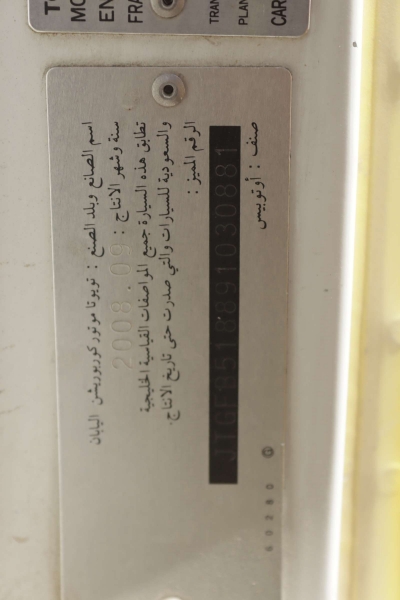 TO
MO
EN
FRA
TRAN
PLAN
CAR
اسم الصانع وبلد الصنع : تويوتا موتور كوربوريشن اليابان
سنة وشهر الانتاج : 2008.09
تطابق هذه السيارة جميع المواصفات القياسية الخليجية
والسعودية للسيارات والتي صدرت حتى تاريخ الانتاج.
الرقم المميز :
صنف : أوتوبيس
60280